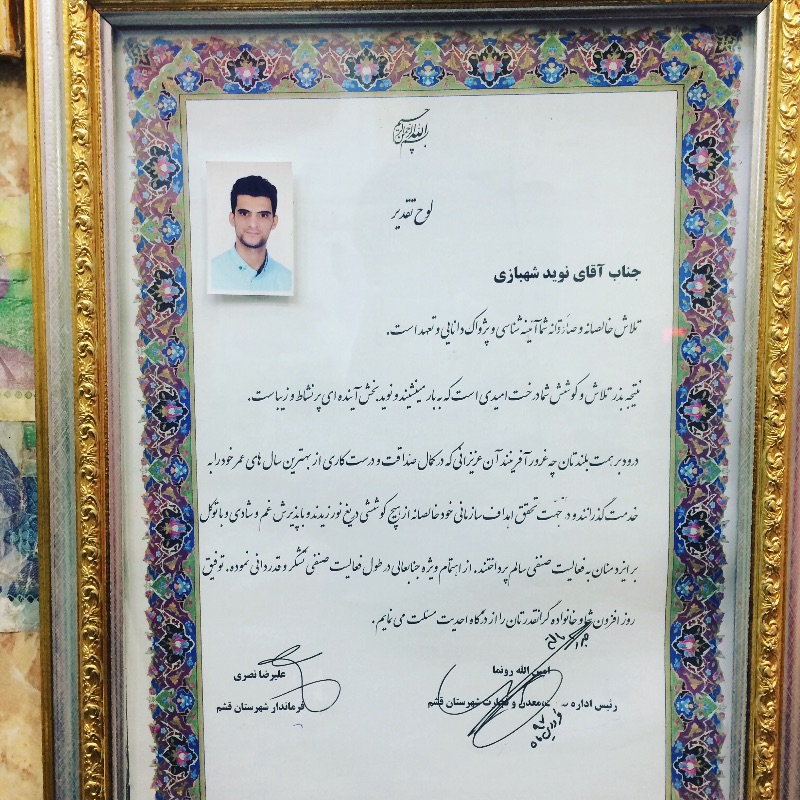 بسم الله الرحمن الرحیم
لوح تقدیر
جناب آقای نوید شهبازی
تلاش خالصانه و صادقانه شما آئینه شناسی و پژواک دانایی و تعهد است.
نتیجه بذر تلاش و کوشش شما درخت امیدی است که به بار مینشیند و نوید بخش آینده ای پر نشاط و زیباست.
درود بر همت بلندتان چه غرور آفرینند آن عزیزانی که در کمال صداقت و درست کاری از بهترین سال های عمر خود را به
خدمت گذرانند و در جهت تحقق اهداف سازمانی خود خالصانه از هیچ کوششی دریغ نورزیدند و با پذیرش غم و شادی و با توکل
بر ایزد منان به فعالیت صنفی سالم پرداختند. از اهتمام ویژه جنابعالی در طول فعالیت صنفی تشکر و قدردانی نموده، توفیق
روز افزون شما و خانواده گرانقدرتان را از درگاه احدیت مسئلت می نمایم.
امین الله رونما
رئیس اداره معدن و تجارت شهرستان قشم
علیرضا نصری
فرماندار شهرستان قشم